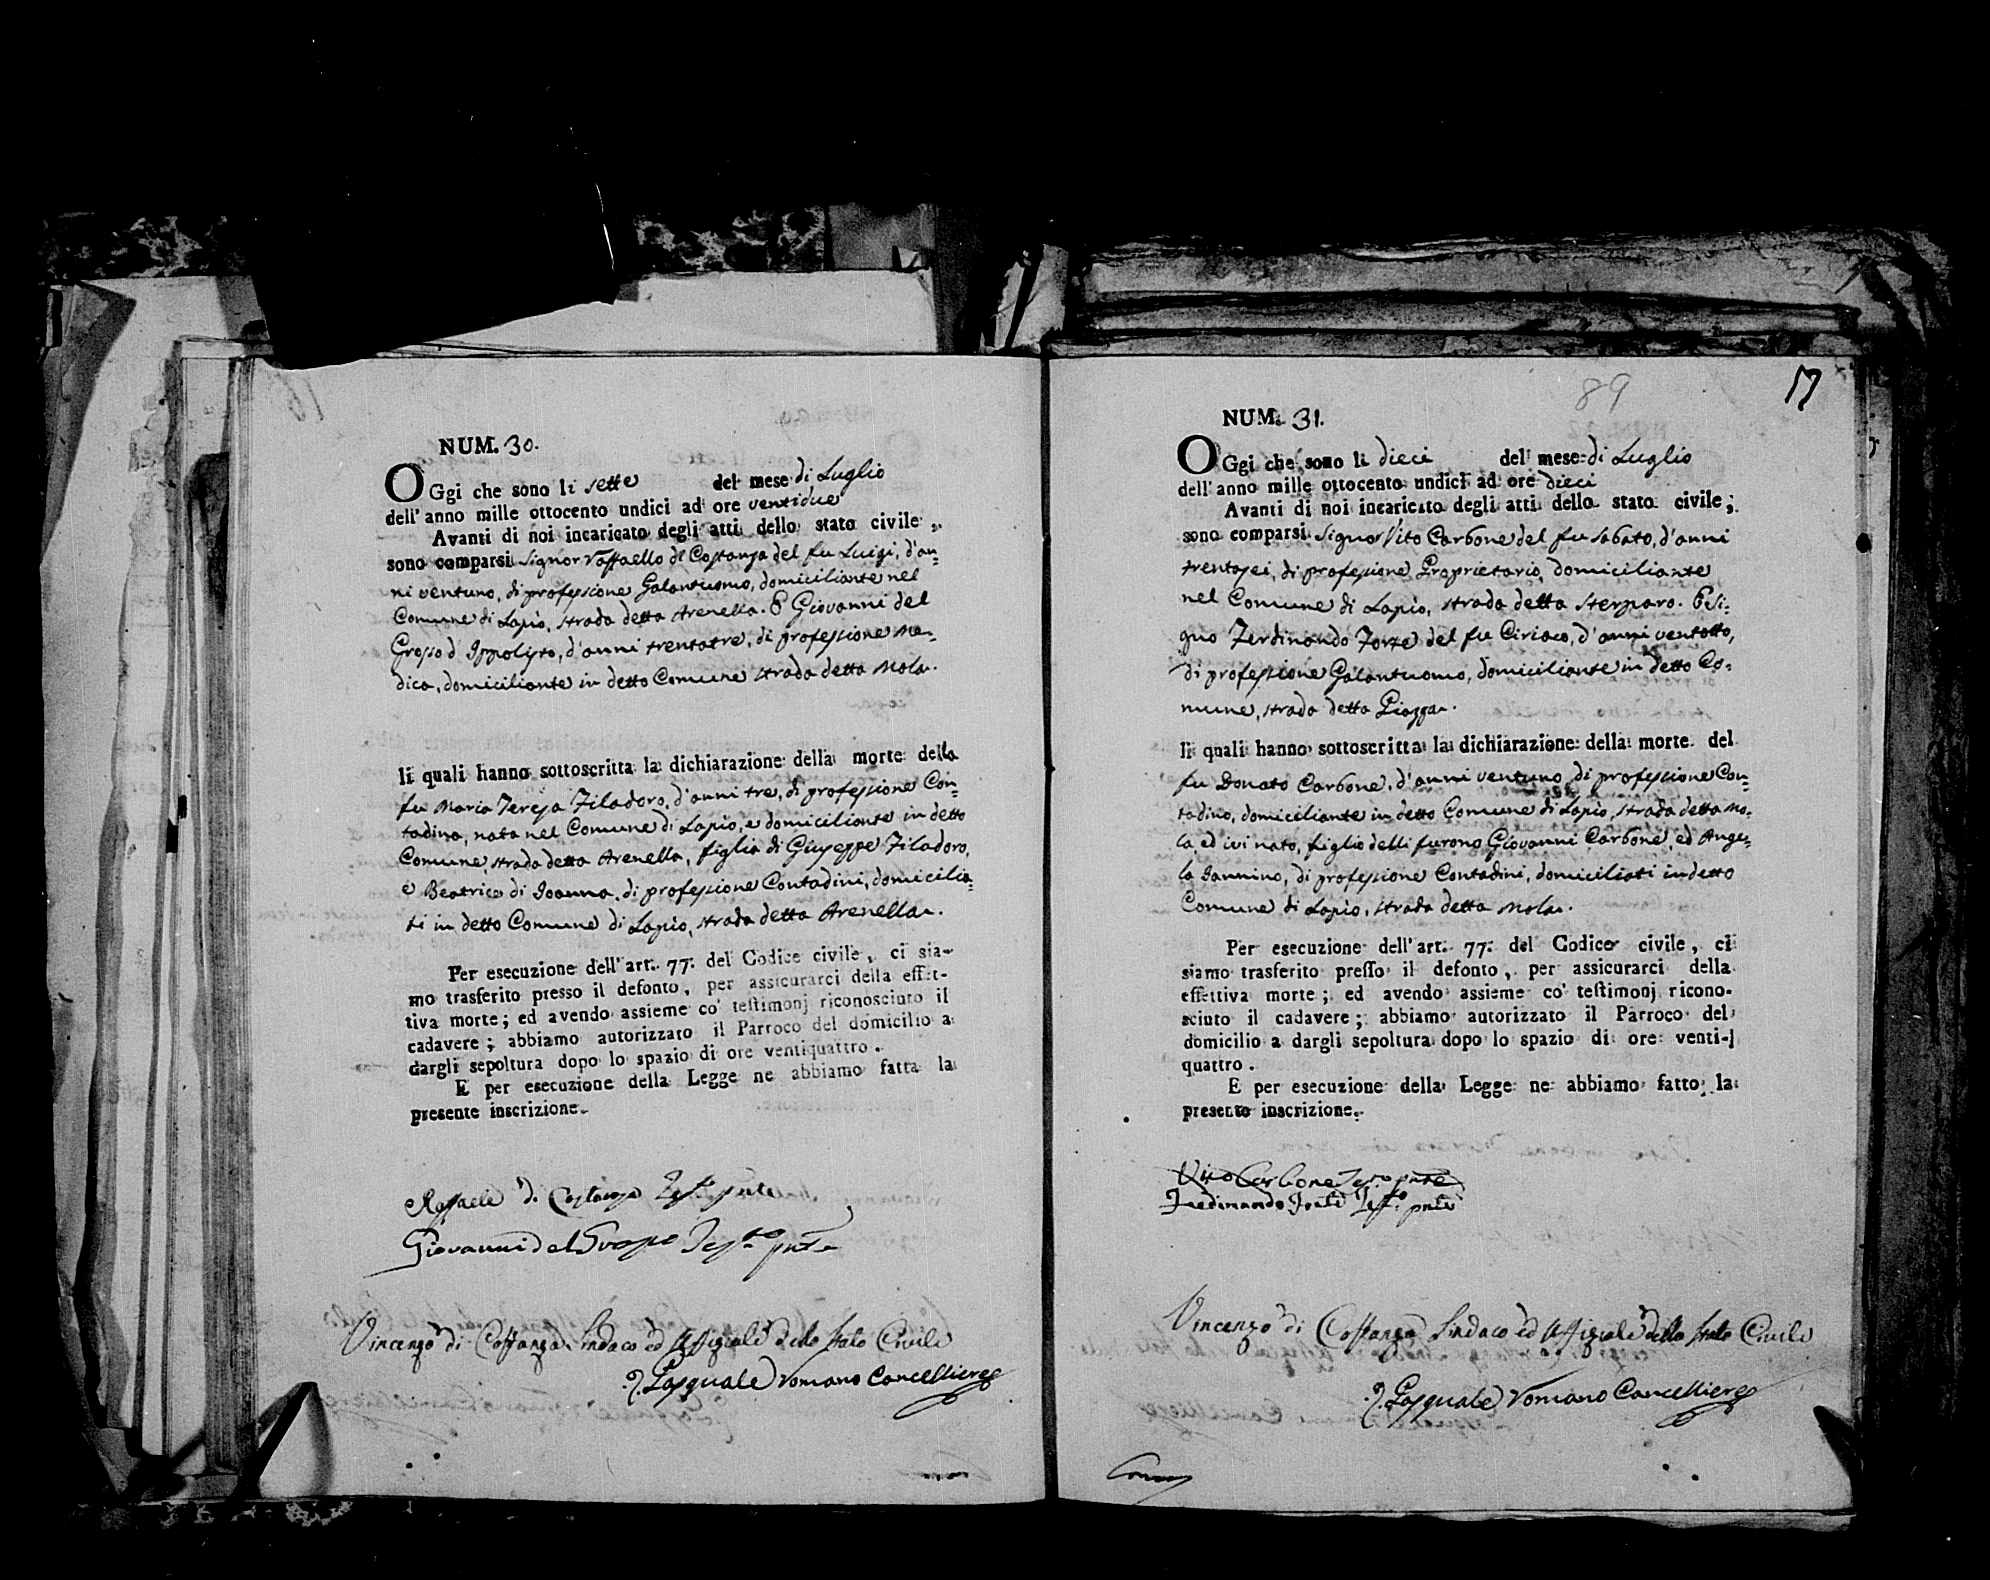 NUM. 30.
OGgi che sono li sette del mese di Luglio
dell' anno mille ottocento undici ad ore ventidue
Avanti di noi incaricato degli atti dello stato civile,
sono comparsi Signor Raffaello di Costanza del fu Luigi, d'an=
ni ventuno, di professione Galantuomo, domiciliante nel
Comune di Lapio, strada detta Arenella. E Giovanni del
Grosso d'Ippolito, d'anni trentatre, di professione Me=
dica, domiciliante in detto Comune strada detta Mola.
li quali hanno sottoscritta la dichiarazione della morte della
fu Maria Teresa Filadoro, d'anni tre, di professione Con=
tadina, nata nel Comune di Lapio, e domiciliante in detto
Comune, strada detta Arenella, figlia di Giuseppe Filadoro,
e Beatrice di Joanna, di professione Contadini, domicilia=
ti in detto Comune di Lapio, strada detta Arenella.
Per esecuzione dell' art. 77. del Codice civile, ci sia-
mo trasferito presso il defonto, per assicurarci della effet-
tiva morte; ed avendo assieme co' testimonj riconosciuto il
cadavere; abbiamo autorizzato il Parroco del domicilio a
dargli sepoltura dopo lo spazio di ore ventiquattro.
E per esecuzione della Legge ne abbiamo fatta la
presente inscrizione.
Raffaele di Costanza Test.° pnte
Giovanni del Grosso Test.° pnte
Vincenzo di Costanza Sindaco ed Uffiziale dello stato Civile
Pasquale Romano Cancelliere
89
17
NUM. 31.
OGgi che sono li dieci del mese di Luglio
dell' anno mille ottocento undici ad ore dieci
Avanti di noi incaricato degli atti dello stato civile;
sono comparsi Signor Vito Carbone del fu Sabato, d'anni
trentasei, di professione Proprietario, domiciliante
nel Comune di Lapio, strada detta Sterparo. E Si=
gno Ferdinando Forte del fu Ciriaco, d'anni ventotto,
di professione Galantuomo, domiciliante in detto Co=
mune, strada detta Piazza.
li quali hanno sottoscritta la dichiarazione della morte del
fu Donato Carbone, d'anni ventuno, di professione Con=
tadino, domiciliante in detto Comune di Lapio, strada detta Mo=
la, ed ivi nato, figlio delli furono Giovanni Carbone, ed Ange=
la Iannino, di professione Contadini, domiciliati in detto
Comune di Lapio, strada detta Mola.
Per esecuzione dell' art. 77. del Codice civile, ci
siamo trasferito presso il defonto, per assicurarci della
effettiva morte; ed avendo assieme co' testimonj ricono-
sciuto il cadavere; abbiamo autorizzato il Parroco del
domicilio a dargli sepoltura dopo lo spazio di ore venti-
quattro.
E per esecuzione della Legge ne abbiamo fatto la
presente inscrizione.
Vito Carbone Test.° pnte
Ferdinando Forte Test.° pnte
Vincenzo di Costanza Sindaco ed Uffiziale dello stato Civile
Pasquale Romano Cancelliere